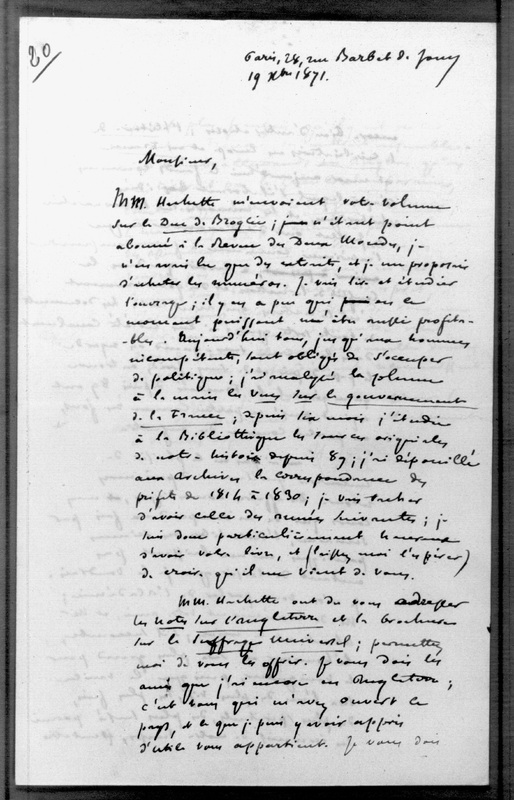 20
Paris, 28, rue Barbet de Jouy
19 Xbre 1871.
Monsieur,
MM. Hachette m'envoient votre volume
sur le Duc de Broglie; n'étant point
abonné à la Revue des Deux Mondes, je
n'en avais lu que des extraits, et je me proposais
d'acheter les numéros. Je vais lire et étudier
l'ouvrage; il y en a peu qui en ce
moment puissent m'être aussi profita-
-bles. Aujourd'hui tous, jusqu'aux hommes
incompétents, sont obligés de s'occuper
de politique; j'ai analysé la plume
à la main les Vues sur le gouvernement
de la France; depuis six mois j'étudie
à la Bibliothèque les sources originales
de notre histoire depuis 89; j'ai dépouillé
aux Archives la correspondance des
préfets de 1814 à 1830; je vais tâcher
d'avoir celle des années suivantes; je
suis donc particulièrement heureux
d'avoir votre livre, et (laissez moi l'espérer)
de croire qu'il me vient de vous.
MM. Hachette ont dû vous adresser
les notes sur l'Angleterre et la brochure
sur le Suffrage Universel; permettez
moi de vous les offrir. Je vous dois les
amis que j'ai encore en Angleterre;
c'est vous qui m'avez ouvert le
pays, et ce que j'puis y avoir appris
d'utile vous appartient. Je vous dois